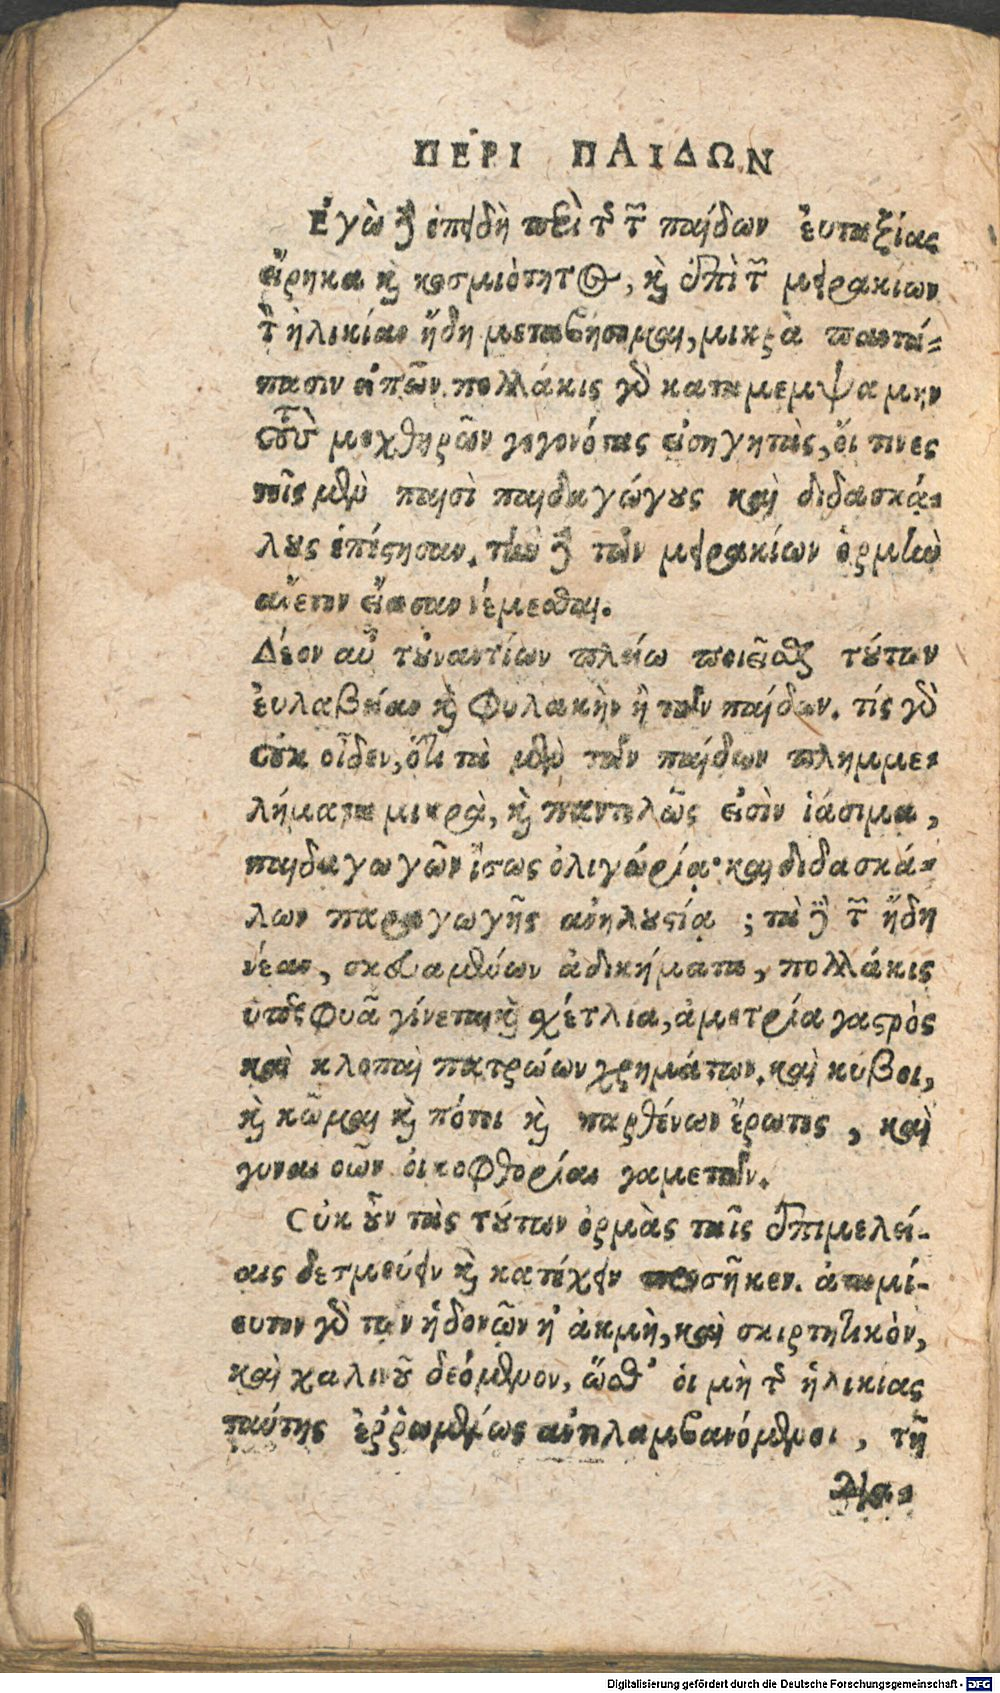 ΠΕΡΙ ΠΑΙΔΩΝ
Ἐγὼ δὲ ἐπειδὴ περὶ τῆς τῶν παίδων ἐυταξίας
εἴρηκα καὶ κοσμιότητος, καὶ ἐπὶ τῶν μειρακίων
τὴν ἡλικίαν ἤδη μεταβήσομαι, μικρὰ παντά-
πασιν εἰπών. πολλάκις γὰρ κατεμεμψάμην
τοὺς μοχθηρῶν γεγονότας εἰσηγητὰς, οἵ τινες
τοῖς μὲν παισὶ παιδαγώγους καὶ διδασκά-
λους ἐπέστησαν. τὴν δὲ τῶν μειρακίων ὁρμὴν
ἄφετον εἴασαν νέμεσθαι.
Δέον αὖ τοὐναντίον πλείω ποιεῖσθαι τούτων
ἐυλαβείαν καὶ φυλακὴν ἢ τῶν παίδων. τίς γὰρ
οὐκ οἶδεν, ὅτι τὰ μὲν τῶν παίδων πλημμε-
λήματα μικρὰ, καὶ παντελῶς εἰσὶν ἰάσιμα,
παιδαγωγῶν ἴσως ὀλιγωρία· καὶ διδασκά-
λων παραγωγῆς ἀνηκουστία; τὰ δὲ τῶν ἤδη
νέαν, σκευαμένων ἀδικήματα, πολλάκις
ὑπερφυᾶ γίνεται καὶ χέτλια, ἀμετρία γαστρὸς
καὶ κλοπαὶ πατρῴων χρημάτων. καὶ κύβοι,
καὶ κῶμαι καὶ πότοι καὶ παρθένων ἔρωτες, καὶ
γυναικῶν οἰκοφθορίαι γαμετῶν.
Οὐκ οὖν τὰς τούτων ὁρμὰς ταῖς ἐπιμελεί-
αις δεσμεύειν καὶ κατέχειν προσῆκεν. ἀταμί-
ευτον γὰρ τῶν ἡδονῶν ἡ ἀκμὴ, καὶ σκιρτητικὸν,
καὶ χαλινοῦ δεόμενον, ὥσθ' οἱ μὴ τῆς ἡλικίας
ταύτης ἐῤῥωμένως ἀντιλαμβανόμενοι, τῇ
δια-
Digitalisierung gefördert durch die Deutsche Forschungsgemeinschaft - DFG